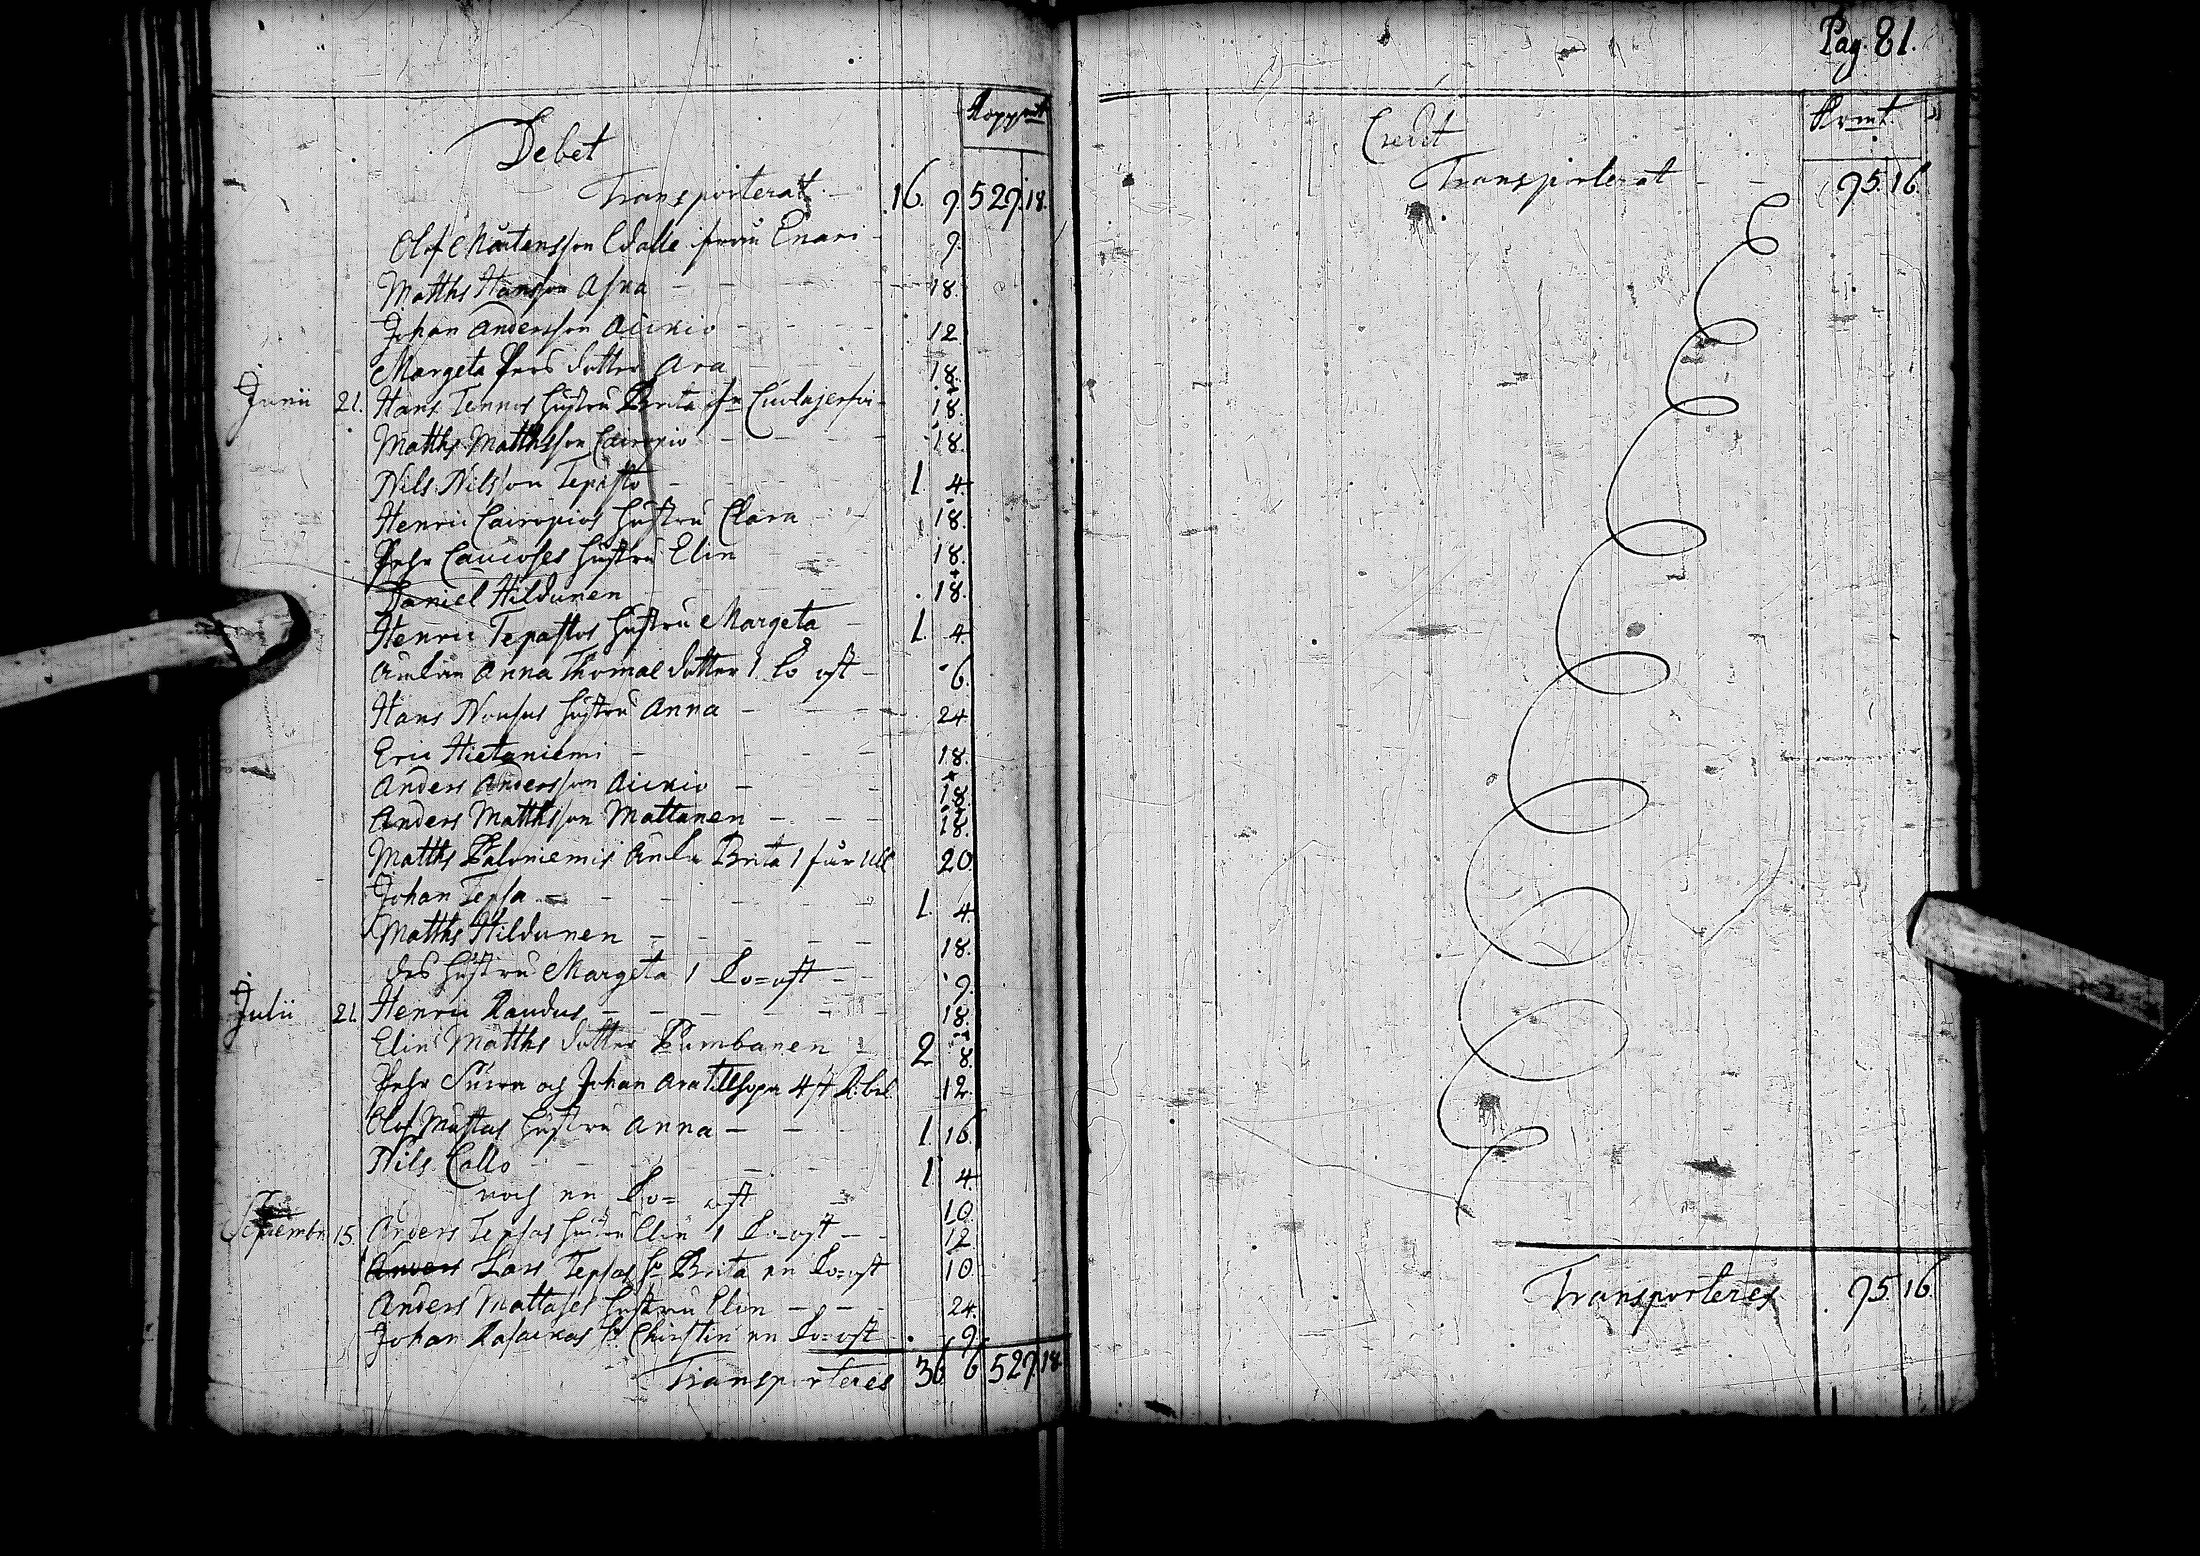 Debet
Koppmt
Transporterat 16. 9. 529. 18.
Olof Mårtensson Walle från Enari 9.
Matths Hansson Aska 18.
Johan Andersson Aickio 12.
Margeta Pers dotter Ara 18.
Junii 21. Hans Tennos hustru Brita
Matths Matthsson Cairopio 18.
Nils Nilsson Tepasto 1. 4.
Henric Cairopios hustru Clara 18.
Pehr hustru Elin 18.
Daniel Hildunen 18.
Henric Tepastos hustru Margeta 1. 4.
Anna Thomae dotter 1 ost 6.
Hans Nousus hustru Anna 24.
Eric Hietaniemi 18.
Anders Andersson Aickio 18.
Anders Matthsson Mattanen 18.
Matths Paloniemis Brita 1 20.
Johan Tepsa 1. 4.
Matths Hildunen 18.
des hustru Margeta 1 Ko=ost 9.
Julii 21. Henric Raudus 18.
Elin Matths dotter Pumbanen 2. 8.
Pehr och Johan Ara 4 12.
Olof Mustas hustru Anna 1. 16.
Nils Collo 1. 4.
noch en Ko=ost 10.
Septembr 15. Anders Tepsas hustru Elin 1 Ko=ost 12.
Lars Tepsas h. Brita en Ko=ost 10.
Anders Mattases hustru Elin 24.
Johan h. Christin en Ko=ost 9.
Transporteres 36. 6. 529. 18.
Pag. 81.
Credit
Transporterat 95. 16.
Transporteres 95. 16.